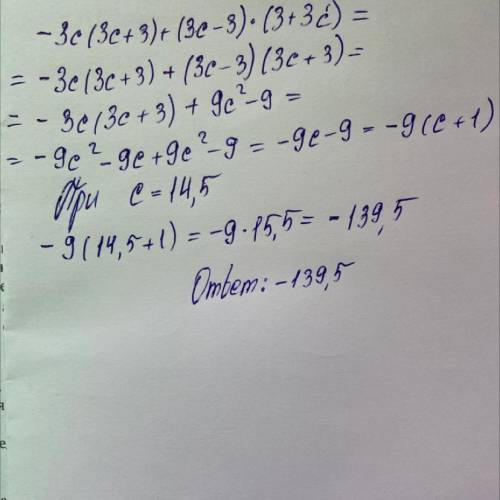 -3c(3c+3)+(3c-3)·(3+3c)=
= -3c(3c+3)+(3c-3)(3c+3)=
= -3c(3c+3)+9c²-9=
= -9c²-9c+9c²-9= -9c-9= -9(c+1)
При c=14,5
-9(14,5+1)= -9·15,5= -139,5
Ответ: -139,5